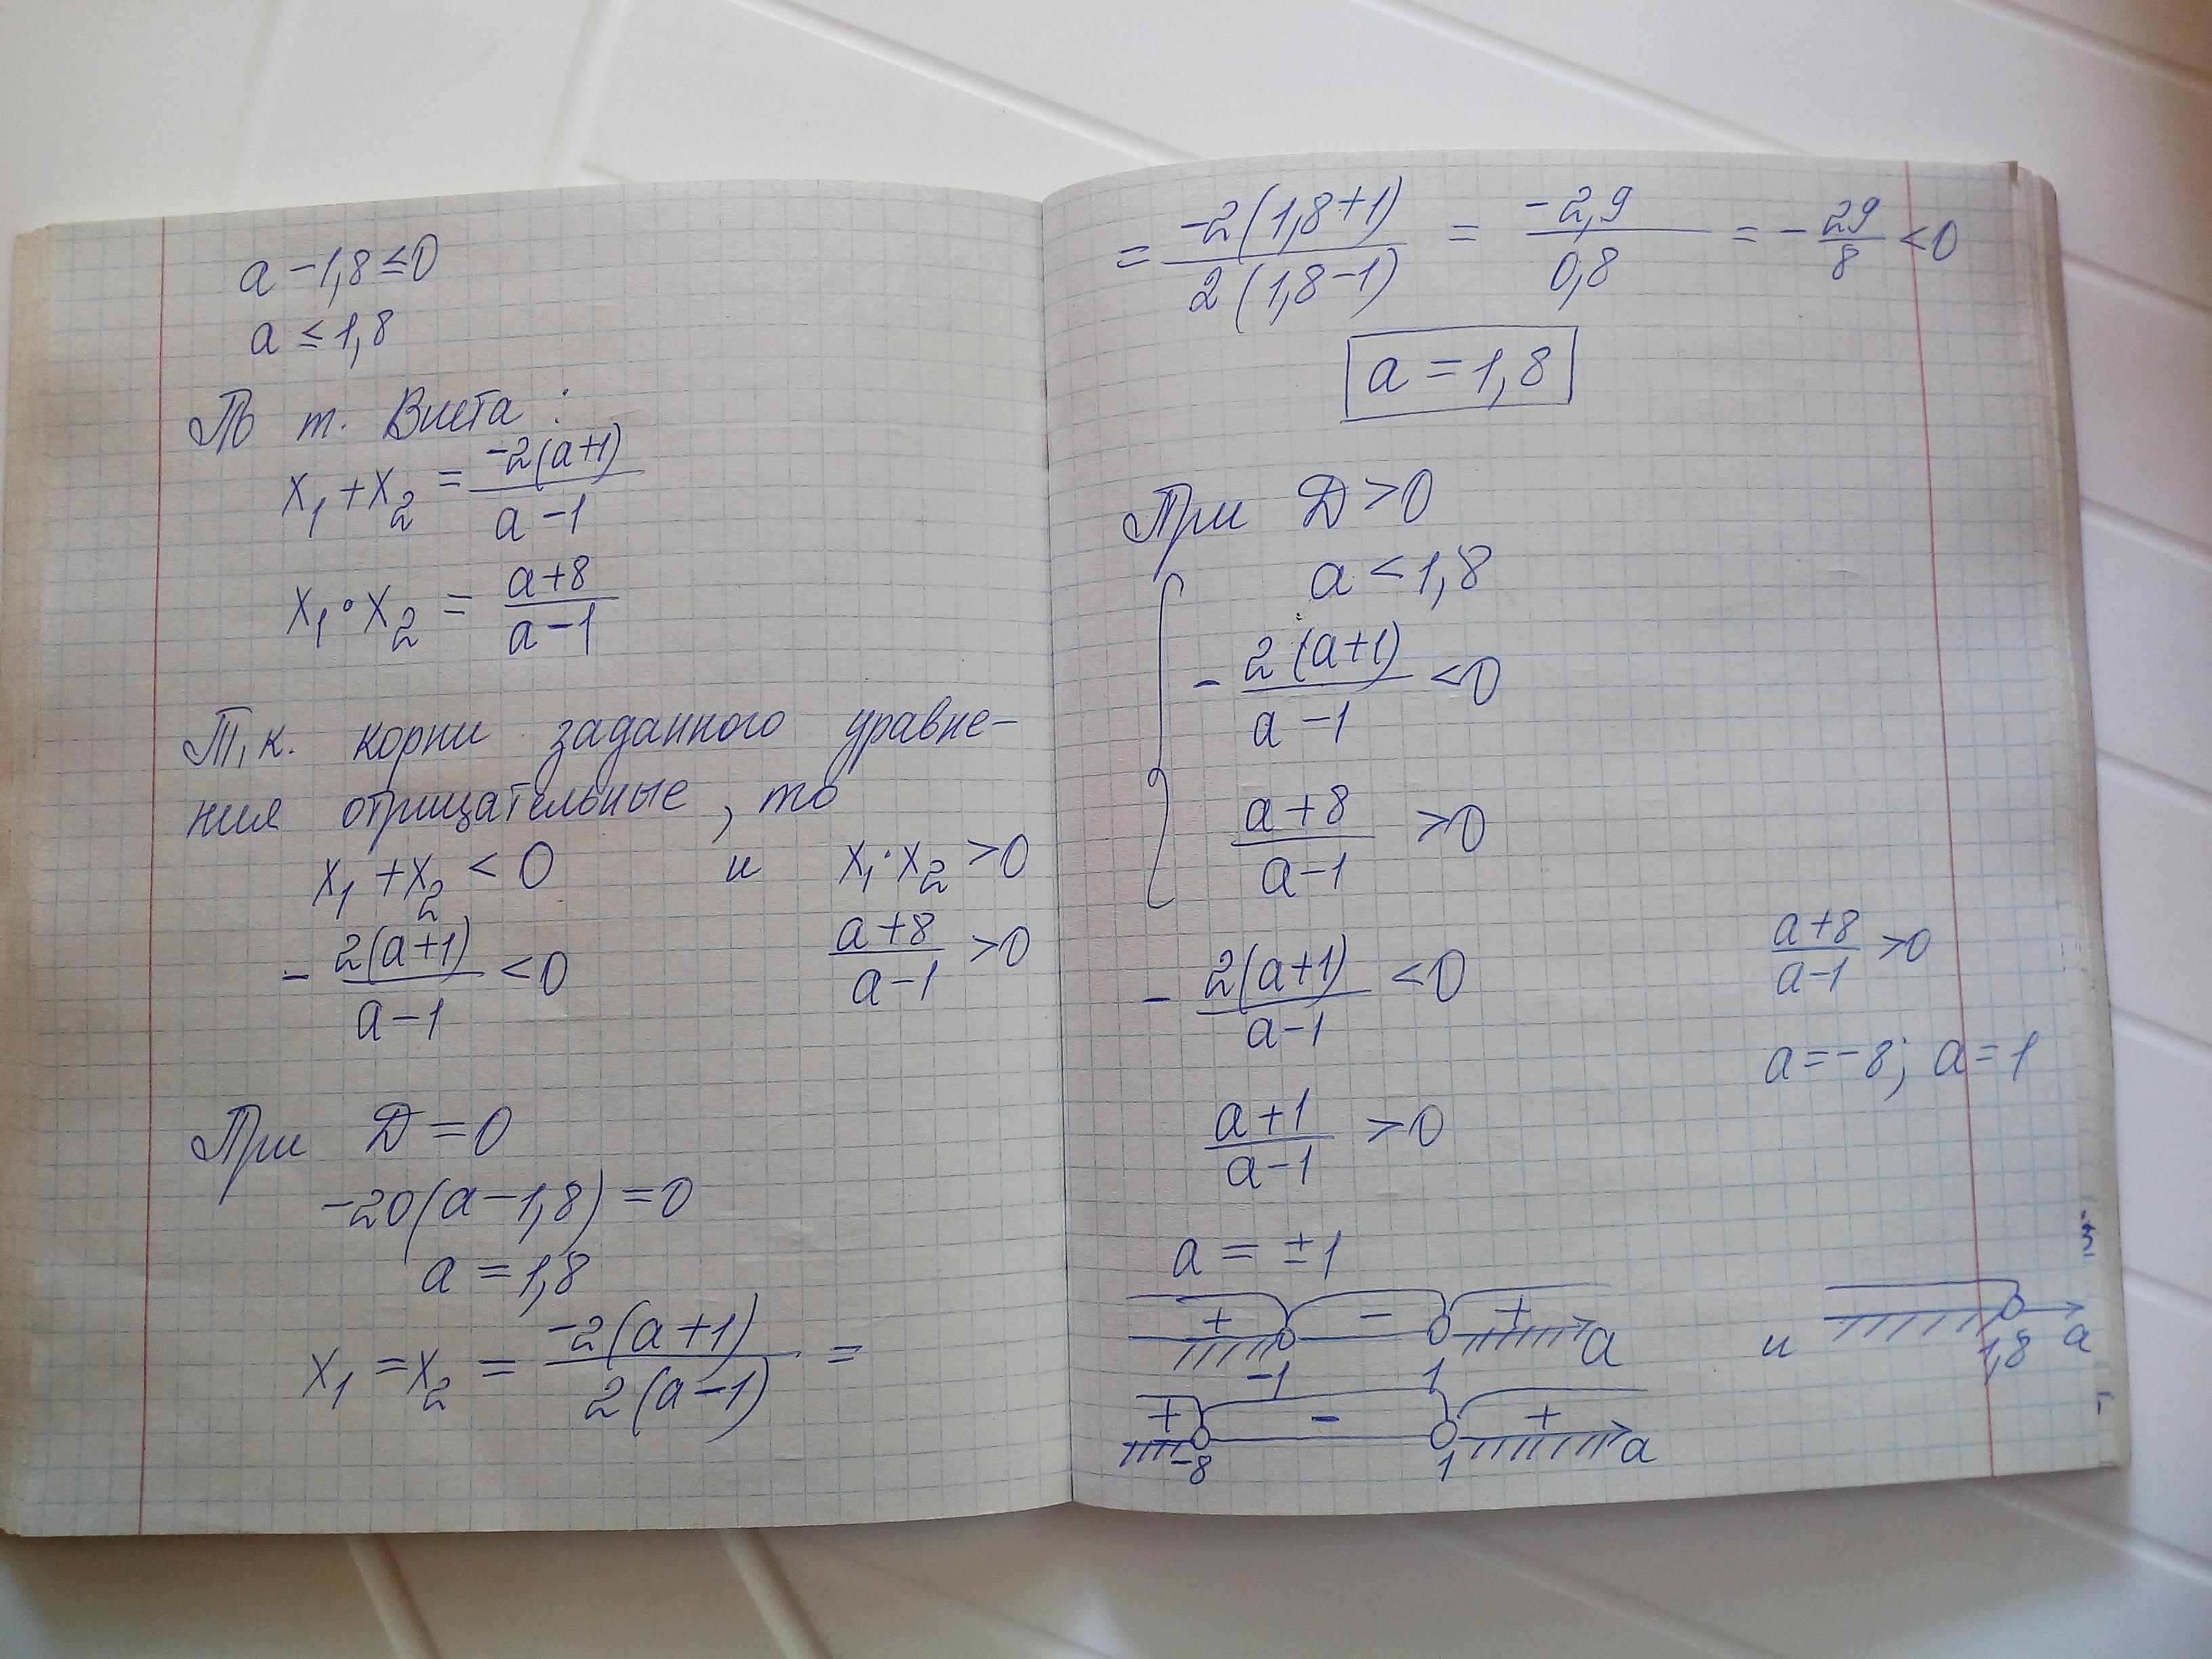 a - 1,8 ≤ 0
a ≤ 1,8
По т. Виета:
x₁ + x₂ = -2(a+1) / a-1
x₁ · x₂ = a+8 / a-1
Т.к. корни заданного уравне-
ния отрицательные, то
x₁ + x₂ < 0 и x₁·x₂ > 0
- 2(a+1) / a-1 < 0 a+8 / a-1 > 0
При D = 0
-20(a-1,8) = 0
a = 1,8
x₁ = x₂ = -2(a+1) / 2(a-1) =
= -2(1,8+1) / 2(1,8-1) = -2,9 / 0,8 = - 29/8 < 0
a = 1,8
При D > 0
a < 1,8
- 2(a+1) / a-1 < 0
a+8 / a-1 > 0
- 2(a+1) / a-1 < 0 a+8 / a-1 > 0
a = -8; a = 1
a+1 / a-1 > 0
a = ±1
+ - + a
-1 1
и 1,8 a
+ - + a
-8 1